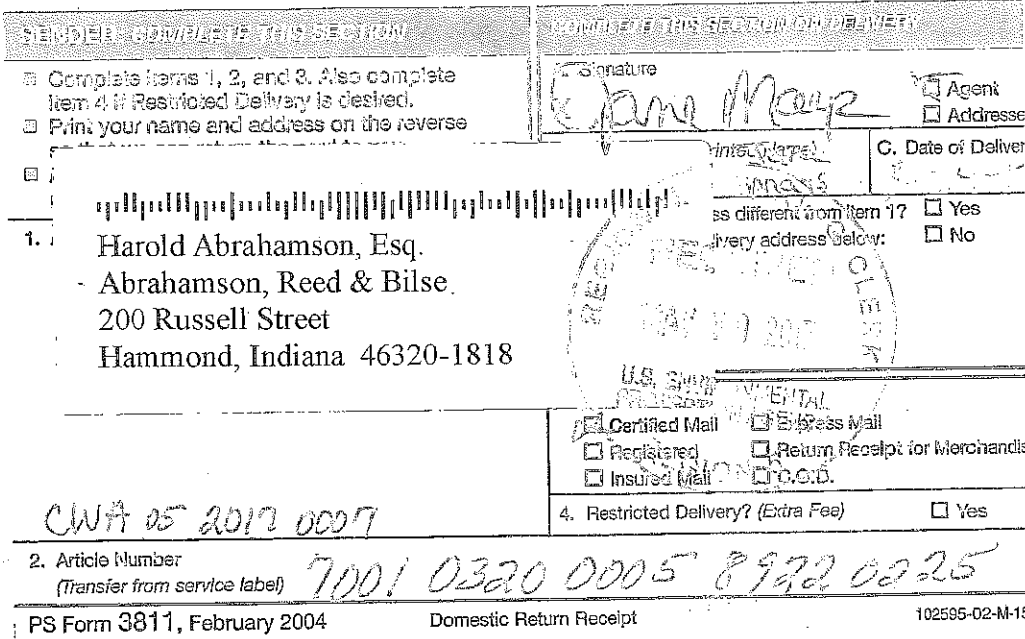 SENDER: COMPLETE THIS SECTION
Complete items 1, 2, and 3. Also complete
item 4 if Restricted Delivery is desired.
Print your name and address on the reverse
1.
Harold Abrahamson, Esq.
Abrahamson, Reed & Bilse
200 Russell Street
Hammond, Indiana 46320-1818
CWA 05 2017 0007
2. Article Number
(Transfer from service label)
7001 0320 0005 8922 0225
PS Form 3811, February 2004
Domestic Return Receipt
102595-02-M-15
COMPLETE THIS SECTION ON DELIVERY
A. Signature
Agent
Addresse
C. Date of Deliver
ss different from item 1? Yes
livery address below: No
REGIONAL CLERK
U.S.
Certified Mail Express Mail
Registered Return Receipt for Merchandis
Insured Mail C.O.D.
4. Restricted Delivery? (Extra Fee) Yes